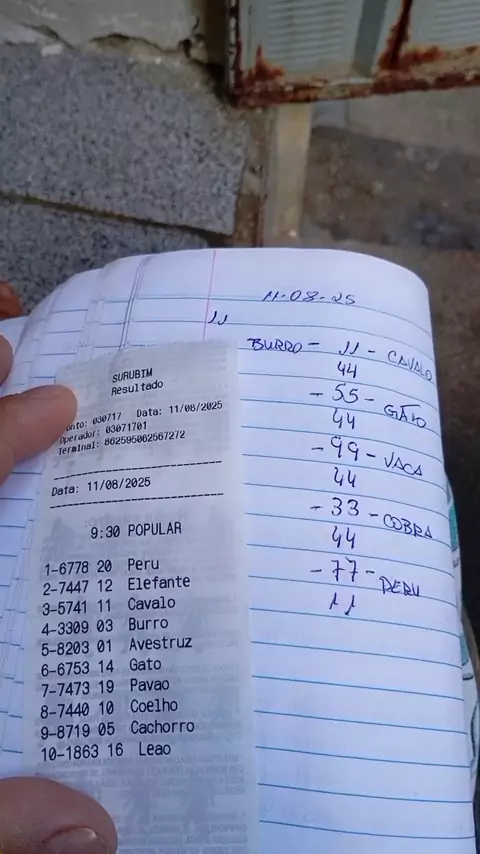 SURUBIM
Resultado
onto: 030717 Data: 11/08/2025
Operador: 03071701
Terminal: 862595062567272
Data: 11/08/2025
9:30 POPULAR
1-6778 20 Peru
2-7447 12 Elefante
3-5741 11 Cavalo
4-3309 03 Burro
5-8203 01 Avestruz
6-6753 14 Gato
7-7473 19 Pavao
8-7440 10 Coelho
9-8719 05 Cachorro
10-1863 16 Leao
11-08-25
11
BURRO - 11 - CAVALO
44
- 55 - GATO
44
- 99 - VACA
44
- 33 - COBRA
44
- 77 - PERU
11